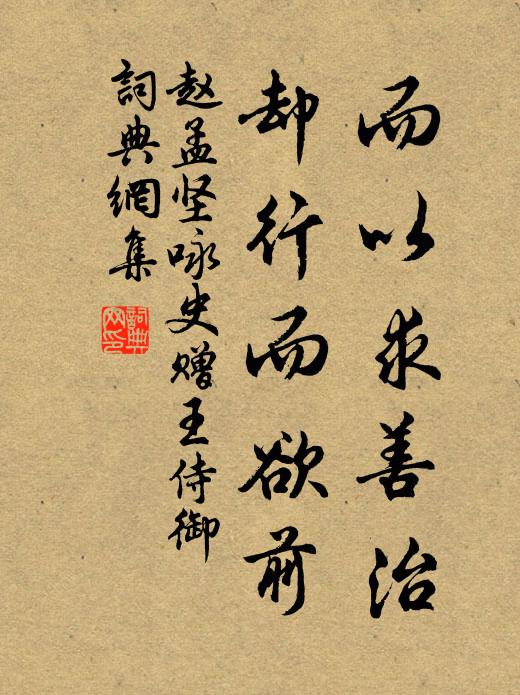 而以求善治
却行而欲前
赵孟坚咏史赠王侍御
詞典網集
詞典網印